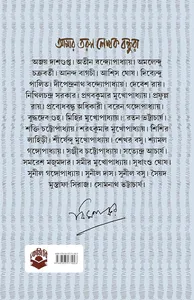 আমার তরুণ লেখক বন্ধুরা
অজয় দাশগুপ্ত। অতীন বন্দ্যোপাধ্যায়। অমলেন্দু
চক্রবর্তী। আনন্দ বাগচী। আশিস ঘোষ। দিব্যেন্দু
পালিত। দীপেন্দ্রনাথ বন্দ্যোপাধ্যায়। দেবেশ রায়।
নিখিলচন্দ্র সরকার। প্রণবকুমার মুখোপাধ্যায়। প্রফুল্ল
রায়। প্রবোধবন্ধু অধিকারী। বরেন গঙ্গোপাধ্যায়।
বুদ্ধদেব গুহ। মিহির মুখোপাধ্যায়। রতন ভট্টাচার্য।
শক্তি চট্টোপাধ্যায়। শরৎকুমার মুখোপাধ্যায়। শিশির
লাহিড়ী। শীর্ষেন্দু মুখোপাধ্যায়। শেখর বসু। শ্যামল
গঙ্গোপাধ্যায়। সঞ্জীব চট্টোপাধ্যায়। সত্যেন্দ্র আচার্য।
সমরেশ মজুমদার। সমীর মুখোপাধ্যায়। সুধাংশু ঘোষ।
সুনীল গঙ্গোপাধ্যায়। সুনীল দাস। সুনীল বসু। সৈয়দ
মুস্তাফা সিরাজ। সোমনাথ ভট্টাচার্য।